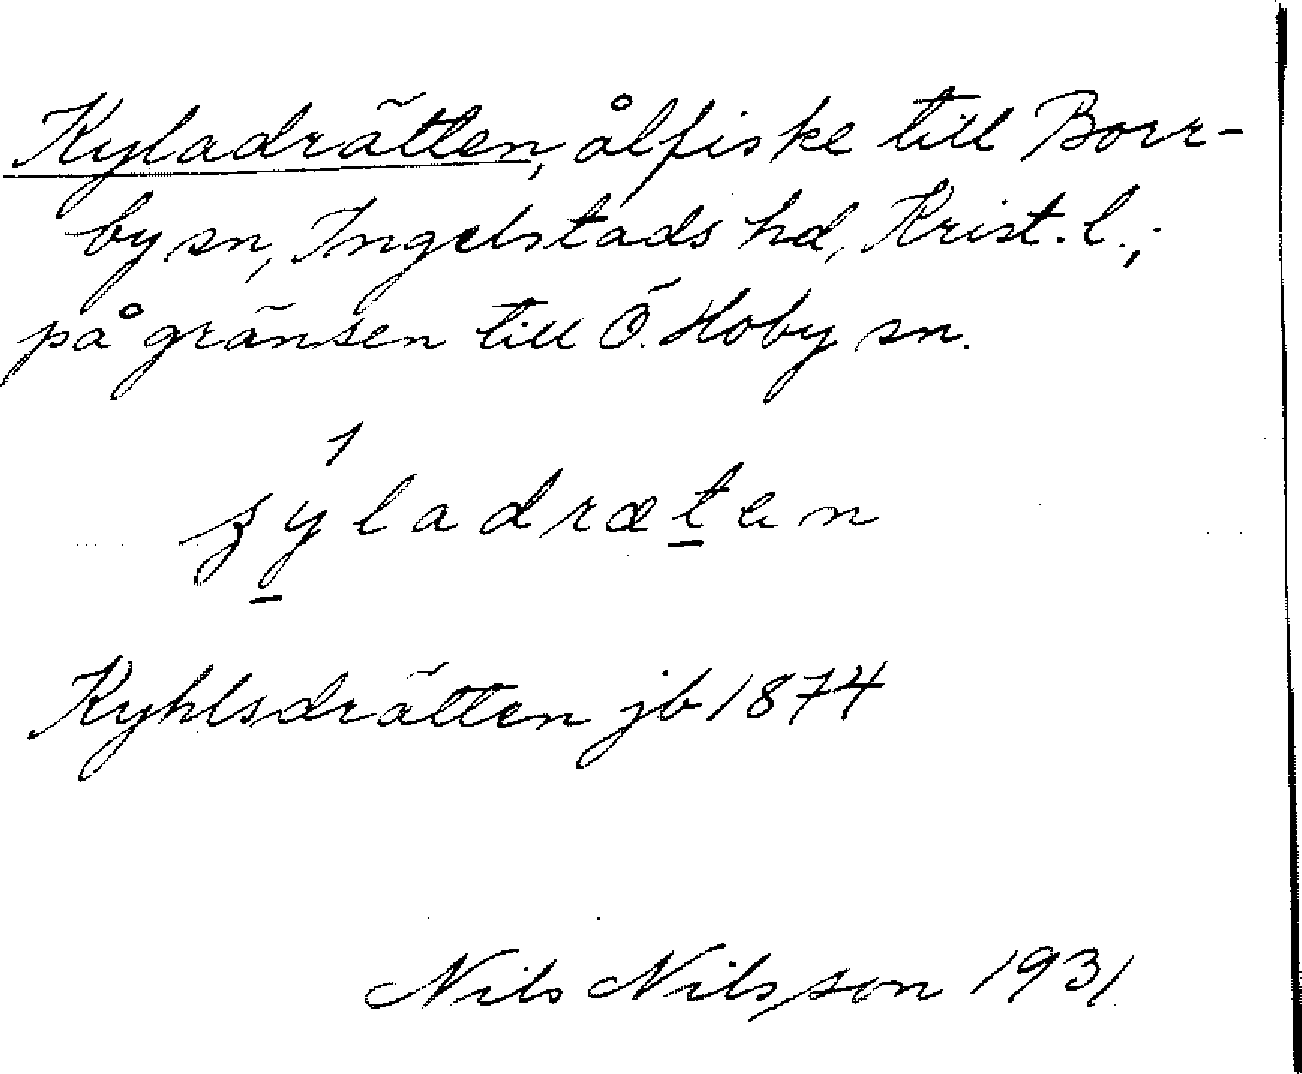 Kyladrätten, ålfiske till Borr-
by sn, Ingelstads hd, Krist. l.,
på gränsen till Ö. Hoby sn.
Kyhlsdrätten jb 1874
Nils Nilsson 1931